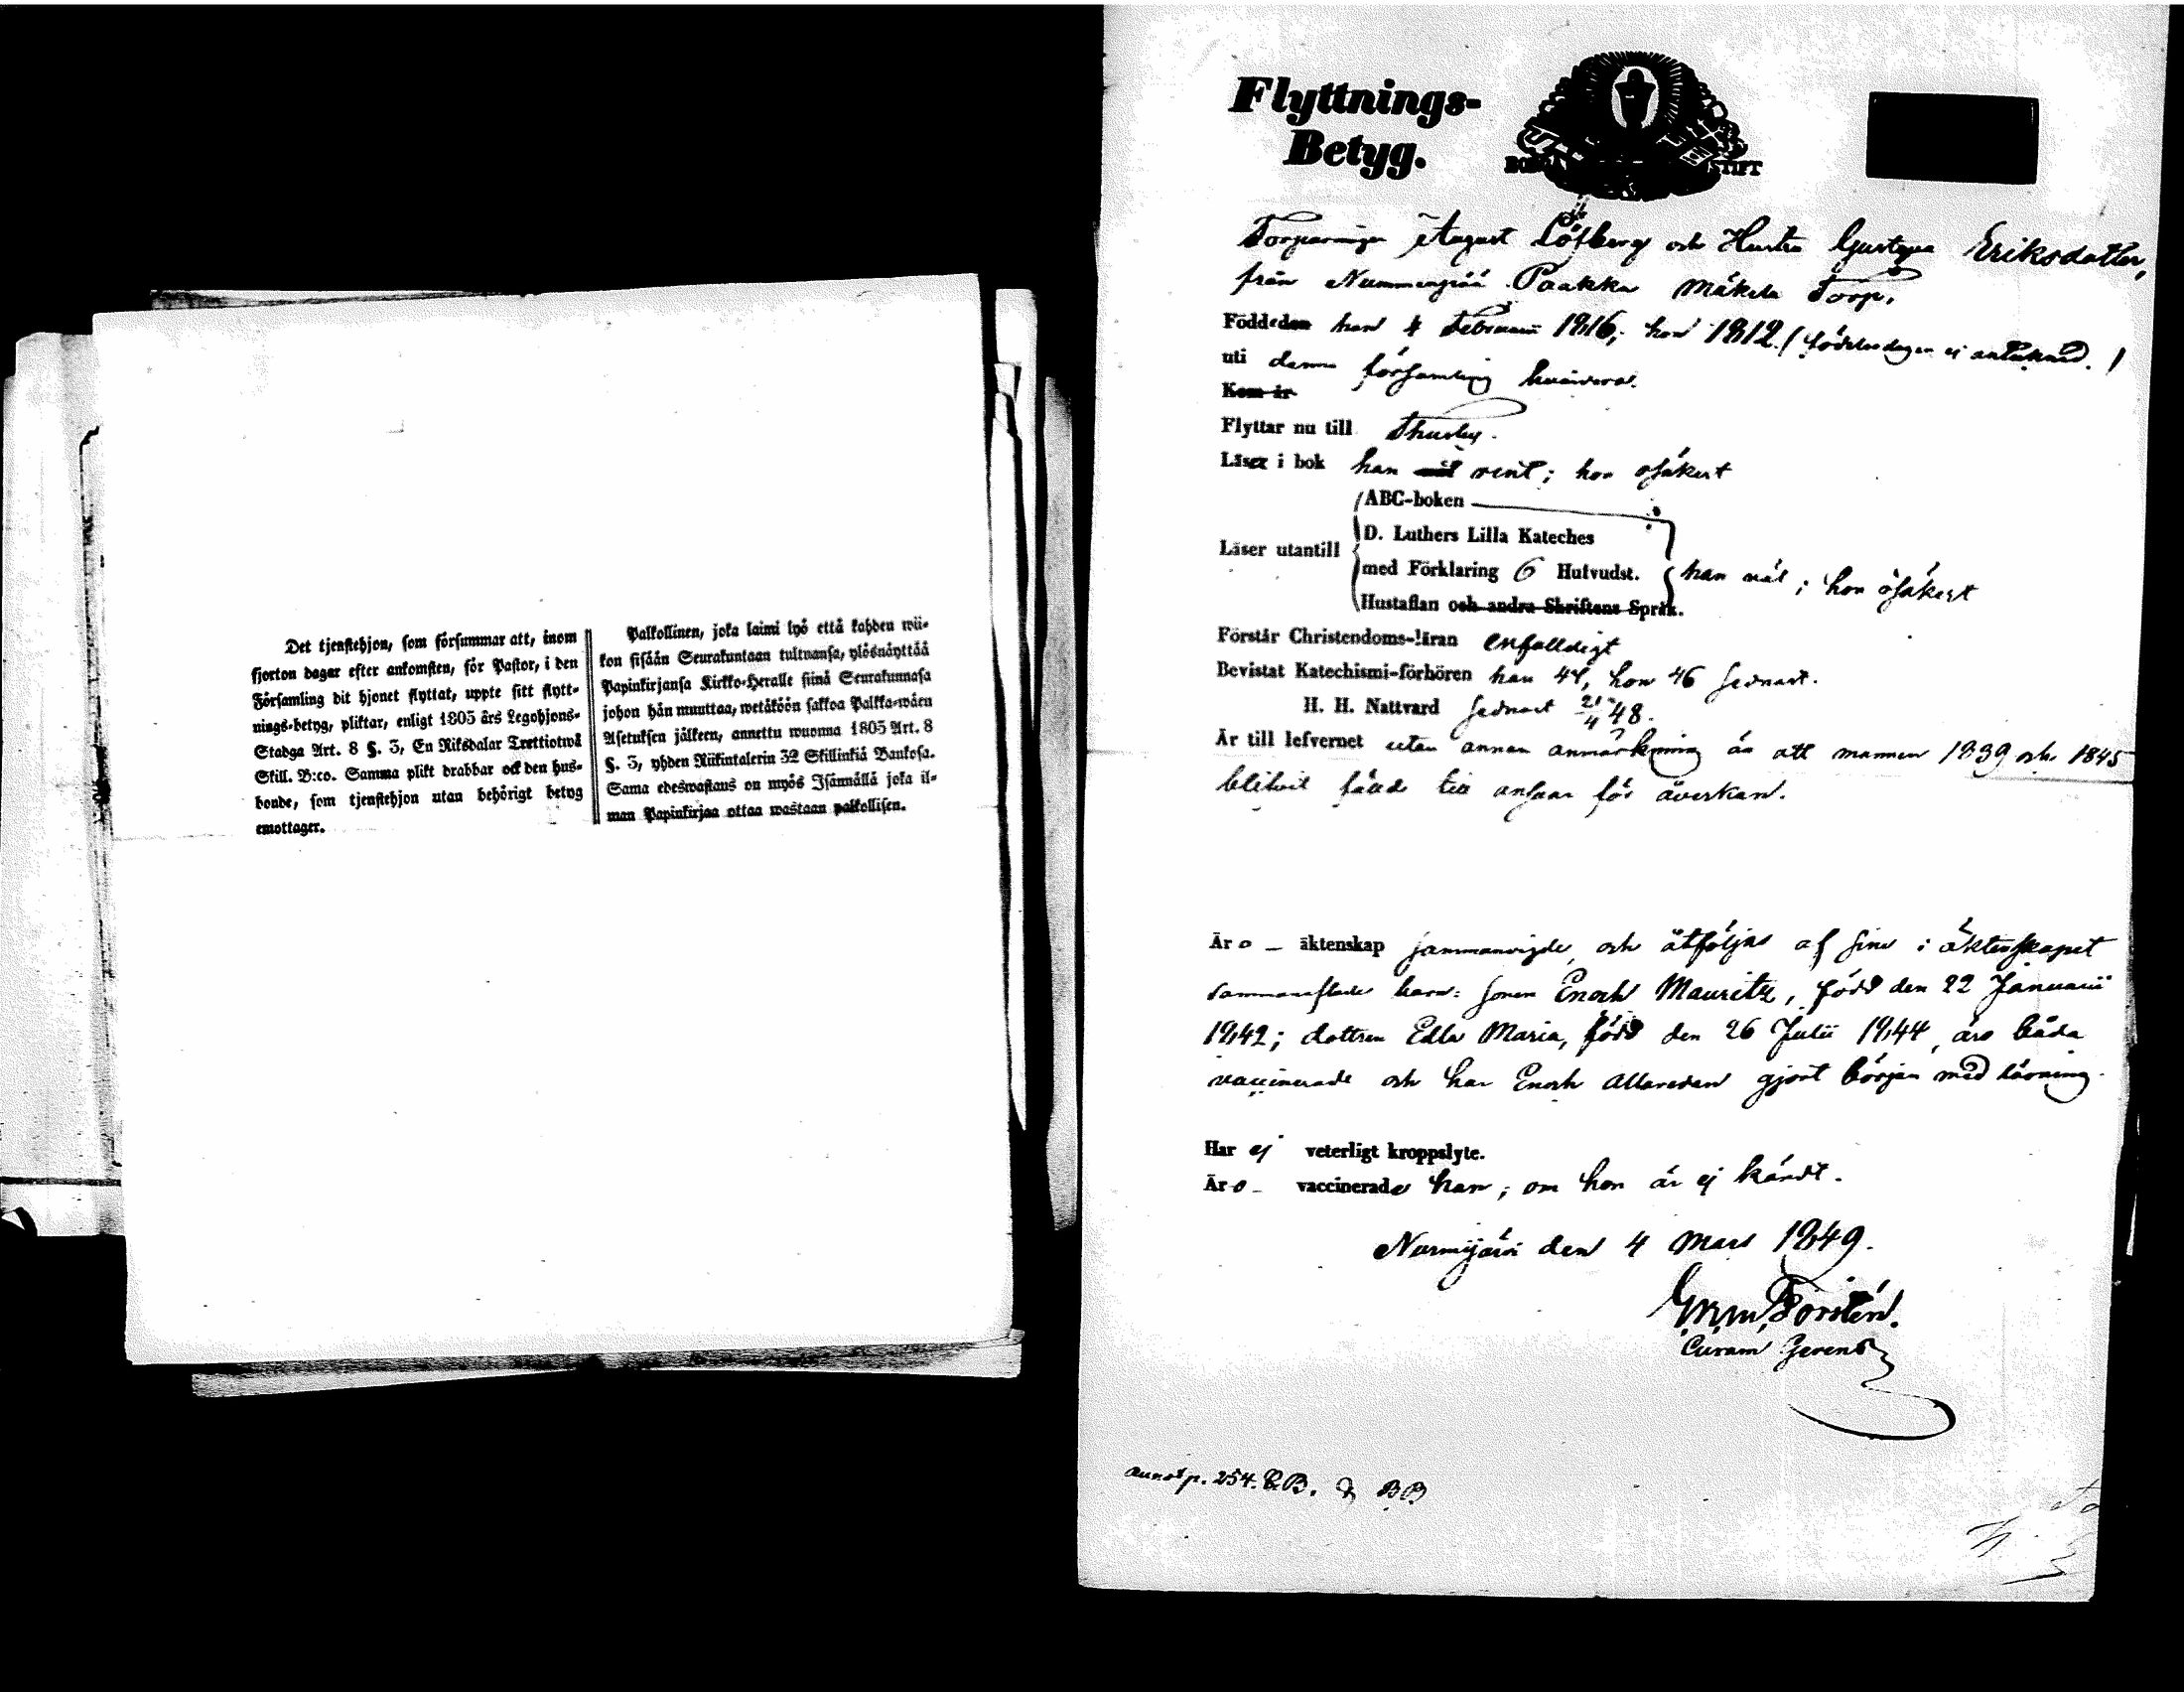 Det tjenstehjon, som försummar att, inom
fjorton dagar efter ankomsten, för Pastor, i den
Församling dit hjonet flyttat, uppte sitt flytt-
nings-betyg, pliktar, enligt 1805 års Legohjons-
Stadga Art. 8 §. 3, En Riksdalar Trettiotwå
Skill. B:co. Samma plikt drabbar ock den hus-
bonde, som tjenstehjon utan behörigt betyg
emottager.
Palkollinen, joka laimi lyö että kahden wii-
kon sisään Seurakuntaan tultuansa, ylösnäyttää
Papinkirjansa Kirkko-Heralle siinä Seurakunnasa
johon hän muuttaa, wetäköön sakkoa Palkka-wäen
Asetuksen jälkeen, annettu wuonna 1805 Art. 8
§. 3, yhden Riikintalerin 32 Skillinkiä Bankosa.
Sama edeswastaus on myös Isännällä joka il-
man Papinkirjaa ottaa wastaan palkollisen.
Flyttnings-
Betyg.
STIFT
August Löfberg och Hustru Gustava Eriksdotter,
från Nummenpää Paakka Mäkelä Torp.
Födde den han 4 Februarii 1816; hon 1812 (födelsedagen ej antecknad.)
uti denna församling hvardera.
Kom år
Flyttar nu till Thusby.
Läser i bok han väl rent; hon osäkert
ABC-boken
D. Luthers Lilla Kateches
Läser utantill
med Förklaring 6 Hufvudst. han väl; hon osäkert
Hustaflan och andra Skriftens Språk.
Förstår Christendoms-läran enfaldigt
Bevistat Katechismi-förhören han 48, hon 46 sednast.
H. H. Nattvard sednast 21/4 48.
Är till lefvernet utan annan anmärkning än att mannen 1839 och 1845
blifvit fäld till ansvar för åverkan.
Är o - äktenskap sammanvigde, och åtföljas af sine i äktenskapet
sammanaflade barn: sonen Enoch Mauritz, född den 22 Januarii
1842; dottren Edla Maria, född den 26 Julii 1844, äro båda
vaccinerade och har Enoch allaredan gjort början med läsning.
Har ej veterligt kroppslyte.
Är o - vaccinerade han; om hon är ej kändt.
Nurmijärvi den 4 Mars 1849.
Forstén.
Curam Gerens
p. 254. BB